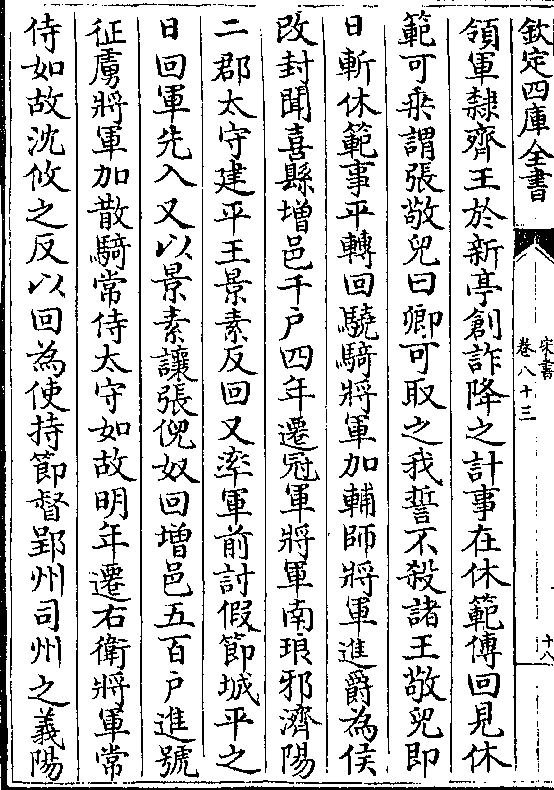 欽定四庫全書
宋書
卷八十三
十八
領軍隸齊王於新亭創詐降之計事在休範傳回見休
範可乘謂張敬兒曰卿可取之我誓不殺諸王敬兒即
日斬休範事平轉回驍騎將軍加輔師將軍進爵為侯
改封聞喜縣增邑千戶四年遷冠軍將軍南琅邪濟陽
二郡太守建平王景素反回又率軍前討假節城平之
日回軍先入又以景素讓張倪奴回增邑五百戶進號
征虜將軍加散騎常侍太守如故明年遷右衛將軍常
侍如故沈攸之反以回為使持節督郢州司州之義陽